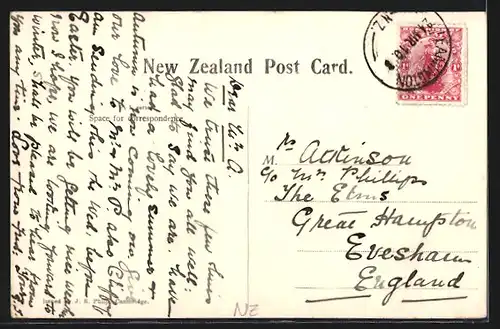 New Zealand Post Card.
Space for correspondence
Dear Mrs A.
We trust these few lines
may find you all well.
Glad to say we are. Have
had a lovely summer &
Autumn is now coming on.
our Love to Mr & Mrs P also
Am Sending this to Wed. before
Easter you will be getting nice weather
now I hope, we are looking forward to
winter, shall be pleased to hear from
you any time. Love from
M rs Atkinson
c/o Mrs Phillips
The Elms
Great Hampton
Evesham
England
ONE PENNY
N.Z.
Issued by J. R.
NZ